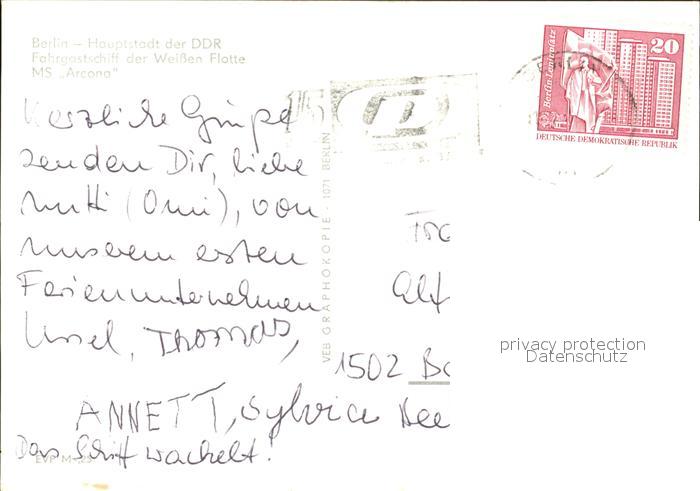 Berlin – Hauptstadt der DDR
Fahrgastschiff der Weißen Flotte
MS „Arcona“
Herzliche Grüße
senden Dir, liebe
Mutti (Omi), von
unserem ersten
Ferienunternehmen
Ursel, THOMAS,
ANNETT, Sylvia
Das Schiff wackelt!
EVP M -,25
VEB GRAPHOKOPIE · 1071 BERLIN
Berlin, Leninplatz
20
DEUTSCHE DEMOKRATISCHE REPUBLIK
1502 Ba
privacy protection
Datenschutz